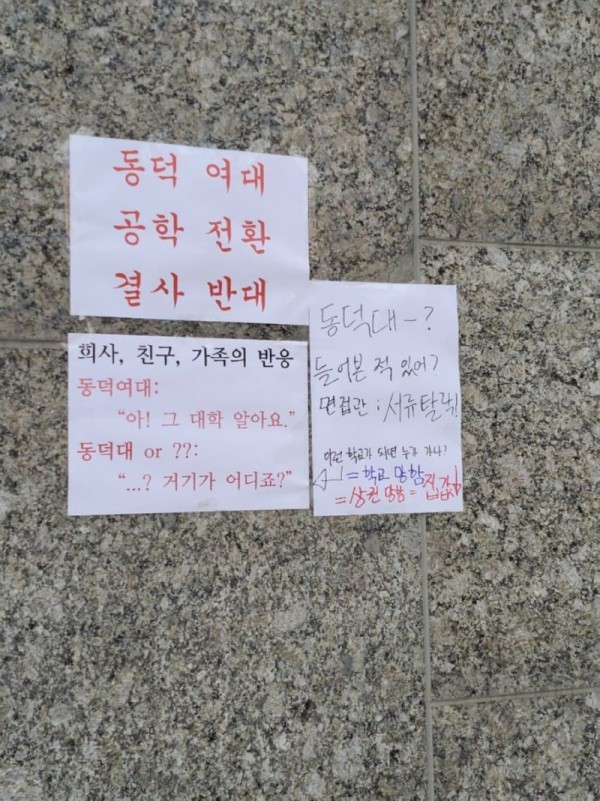 동덕 여대
공학 전환
결사 반대
회사, 친구, 가족의 반응
동덕여대:
"아! 그 대학 알아요."
동덕대 or ??:
"...? 거기가 어디죠?"
동덕대-?
들어본 적 있어?
면접관 : 서류탈락!
이런 학교가 되면 누가 가나?
= 학교 망함
= 상권 망함 = 집값↓